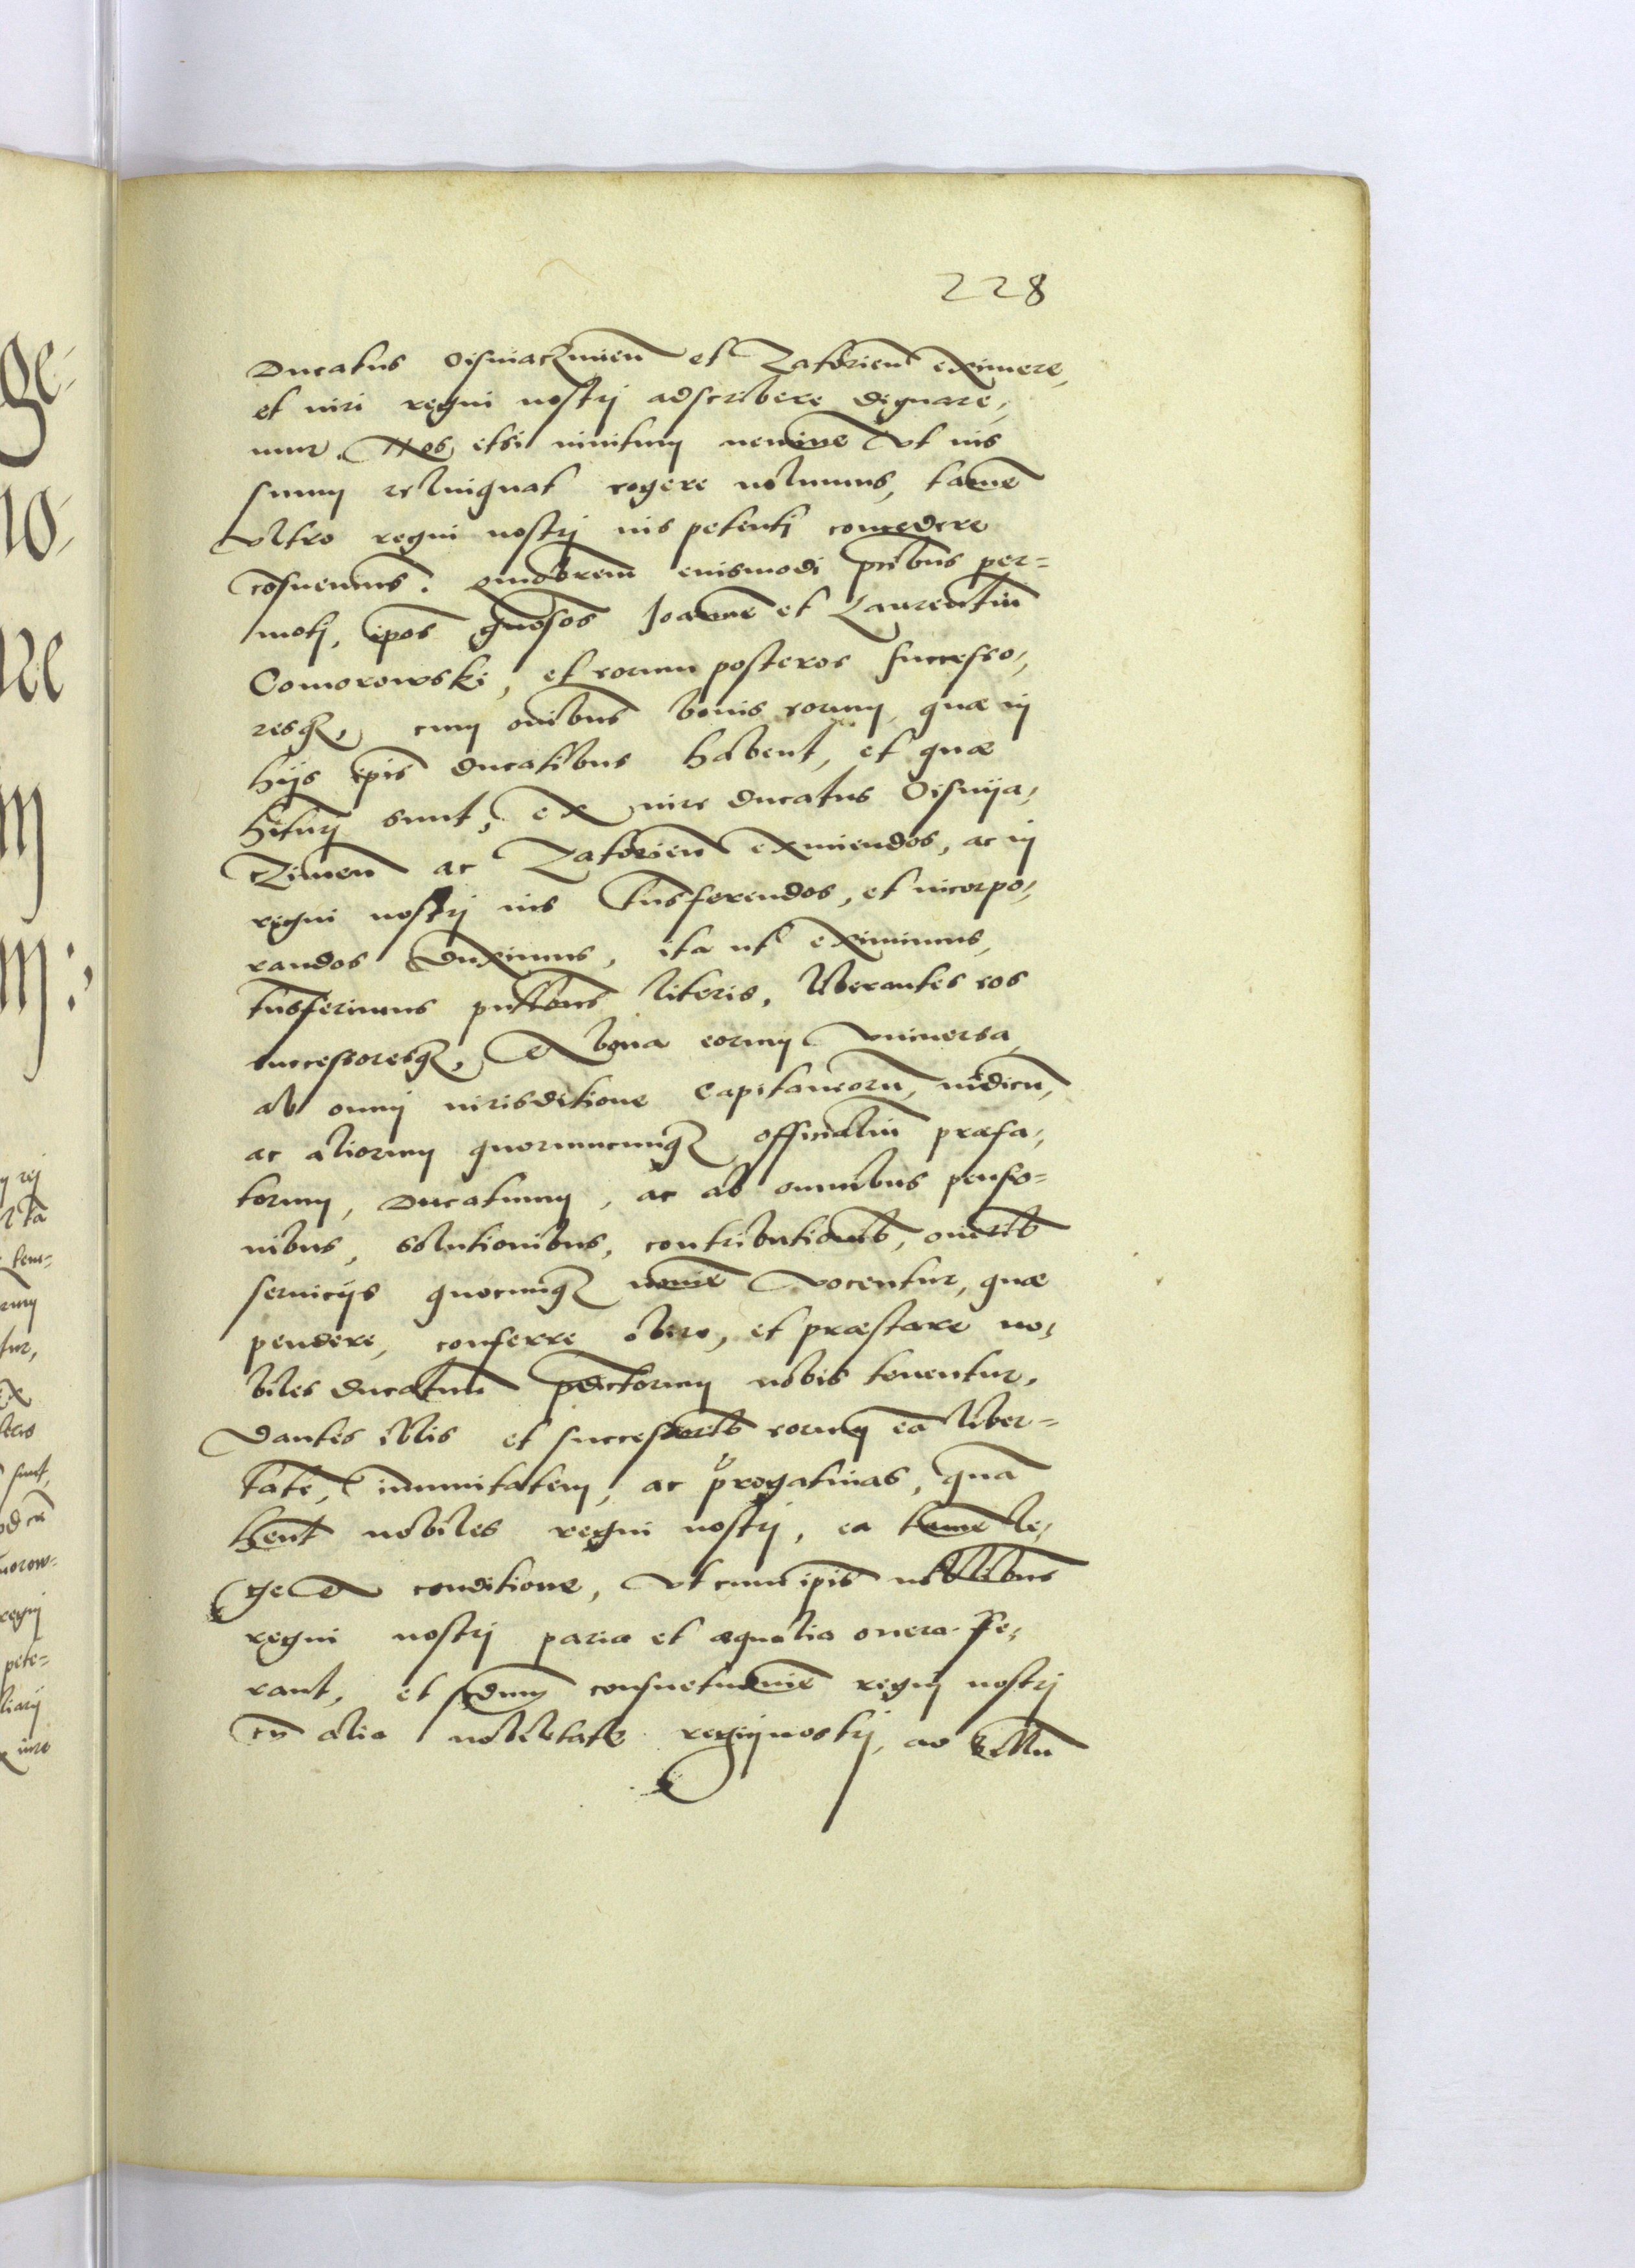 228
Ducatus Osijwiaczimien̄ et Zatorien̄ eximere,
et iuri regni nostrj adscribere dignare,
mur. Nos, etsi inuitum neminē vt ius
suum relinquat cogere uolumus, tamē
vltro regni nostrj ius petentj concedere
cōsueuimus. quāobrem eiusmodi p̄cibus per=
motj, ip̄os gn̄osos Joannē et Laurentiū
Comorowski, et eorum posteros successo,
resq₃, cum om̄ibus bonis eorum, quæ in
hijs ip̄is ducatibus habent, et quæ
h̄iturj sunt, ex iure ducatus Oswija,
czimen̄ ac Zatorien̄ eximendos, ac in
regni nostrj ius trn̄sferendos, et incorpo,
randos duximus, ita ut eximimus,
trn̄sferimus pn̄tibus literis, liberantes eos
successoresq₃, et bona eorum vniuersa,
ab omnj iurisditione Capitaneorū, iudicū,
ac aliorum quorumcumq₃ officialiū præfa,
torum, Ducatuum, ac ab omnibus pensio=
nibus, solutionibus, contributionib₉, onerib₉
seruicijs quocumq₃ nomīe vocentur, quæ
pendere, conferre obire, et præstare no,
biles ducatuū p̄dictorum nobis tenentur.
Dantes illis et successorib₉ eorum eā liber=
tatē, immunitatem, ac prærogatiuas, quā
hn̄t nobiles regni nostrj, ea tamē le,
ge et conditione, vt cum ip̄is nobilibus
regni nostrj paria et æqualia onera fe,
rant, et sc̄dum consuetudinē regnj nostrj
cū alia nobilitate regnj nostrj, ad bellū